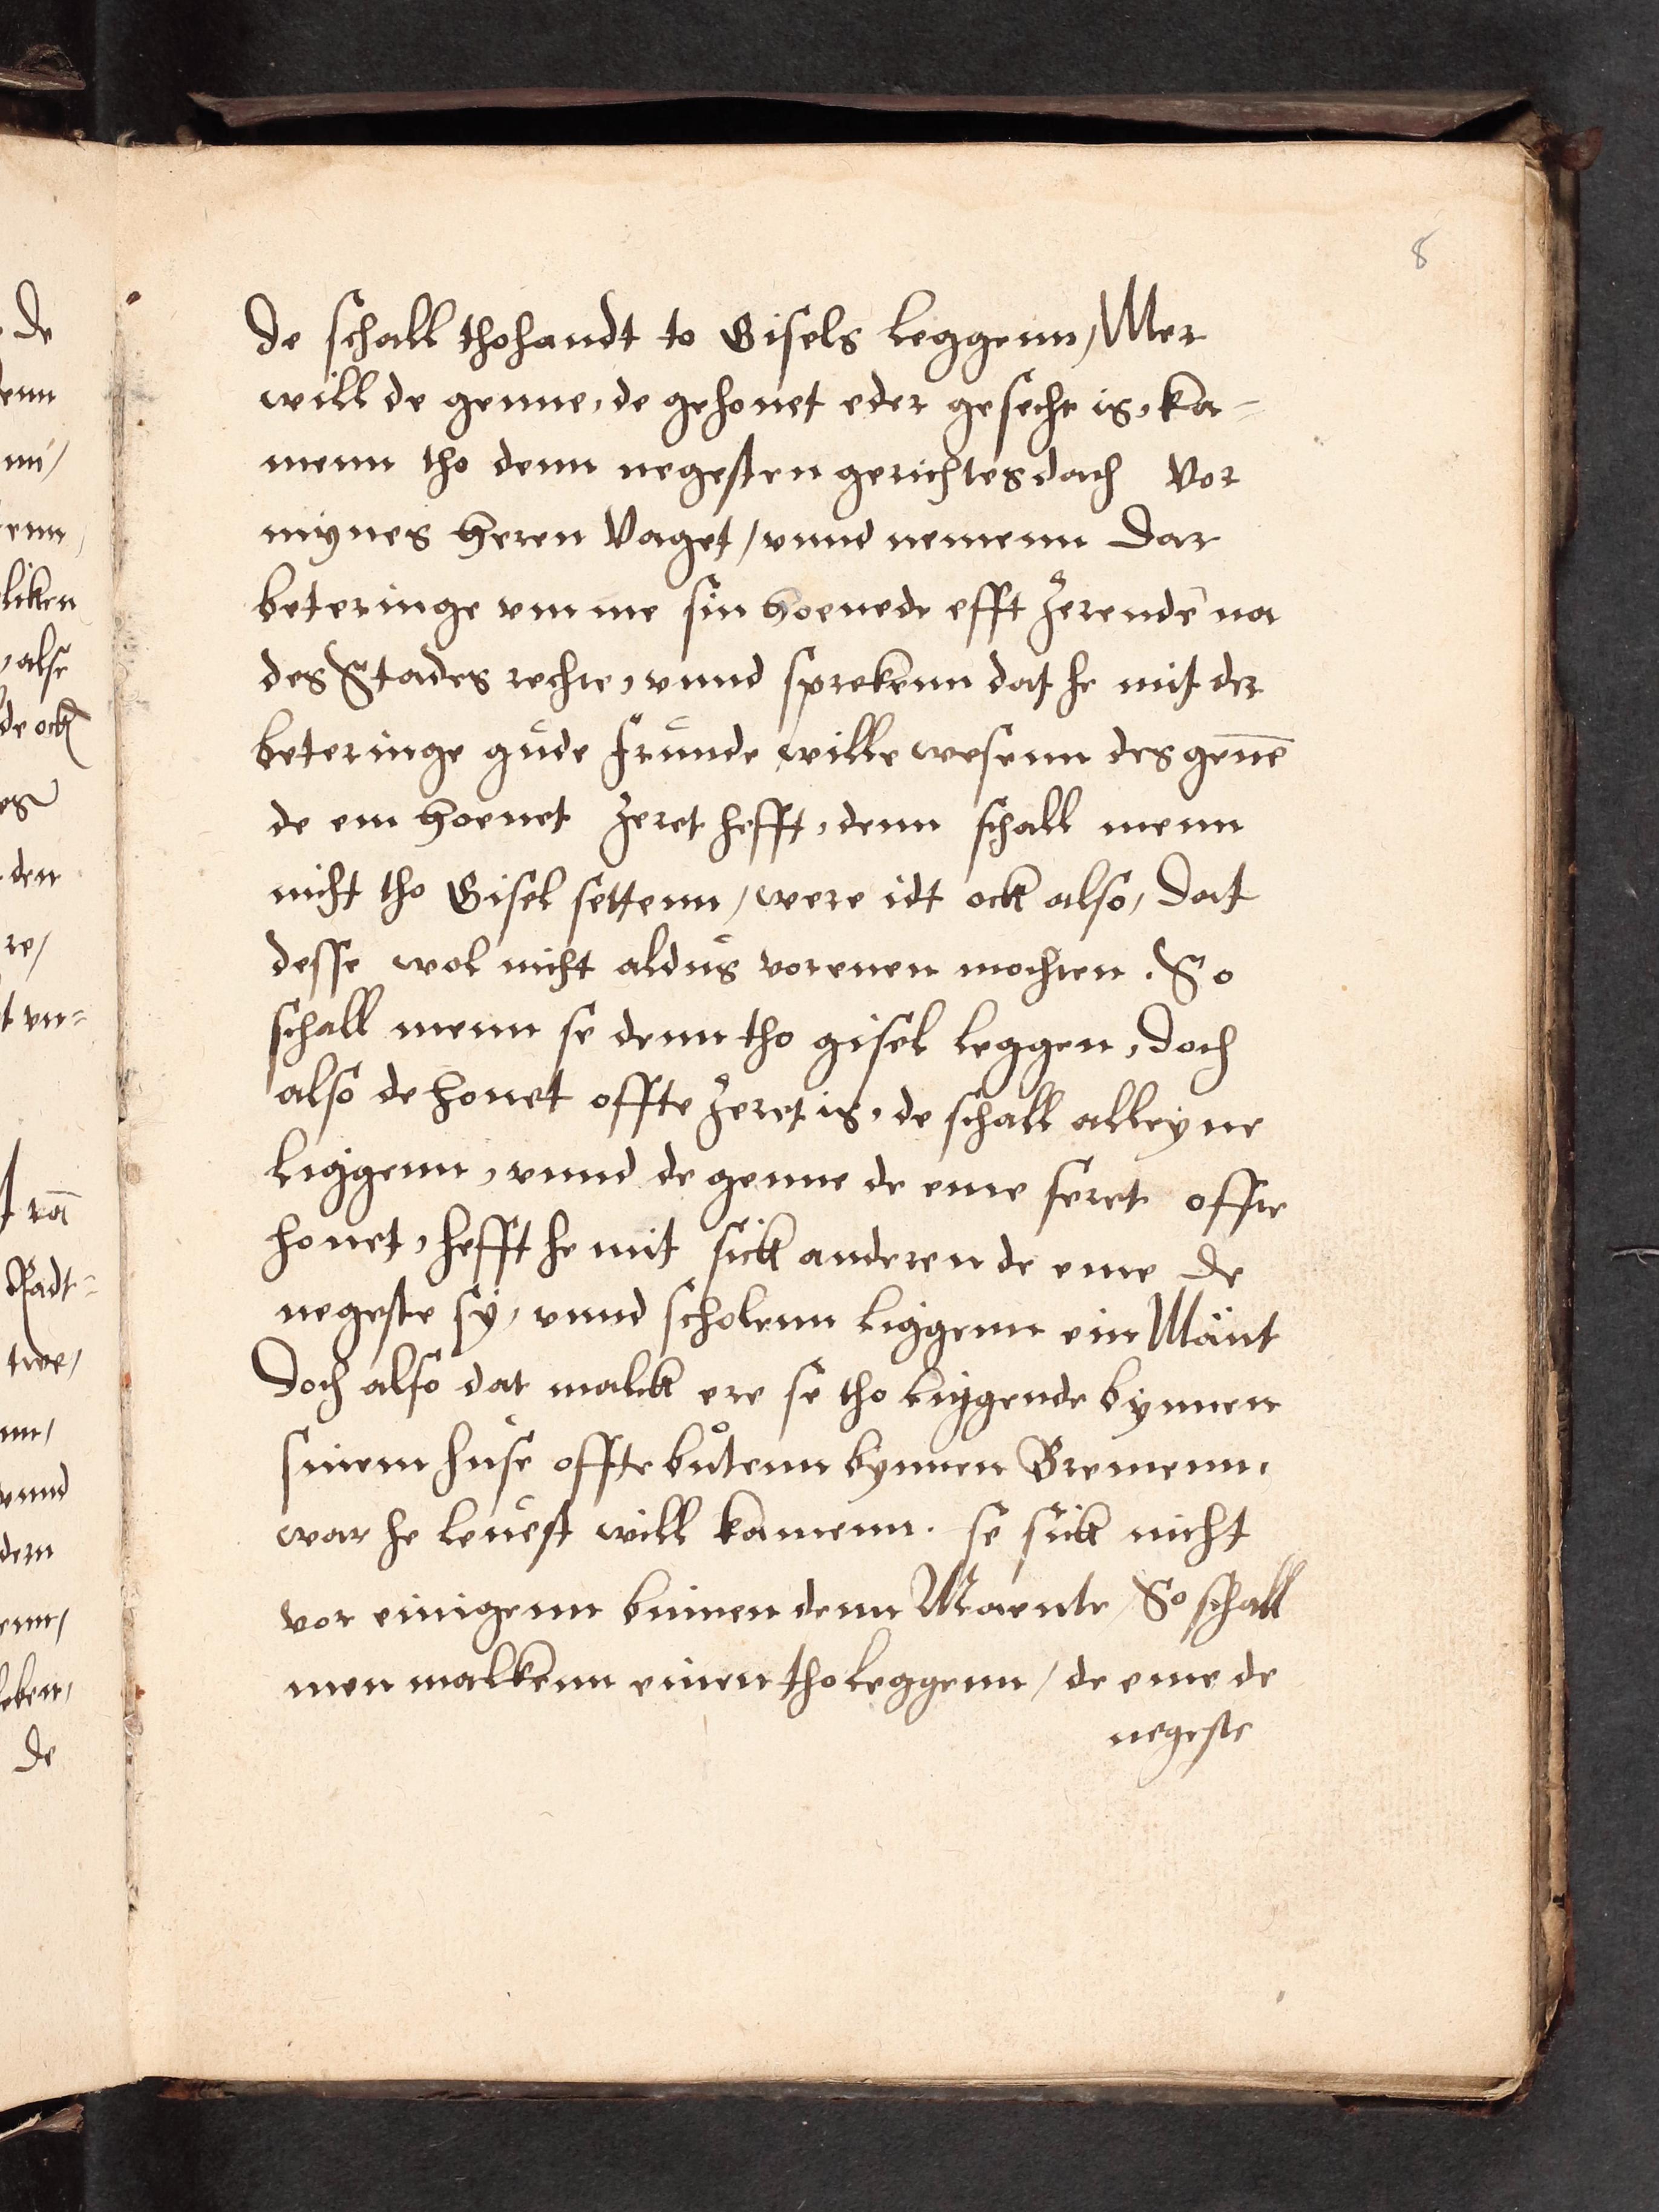 8
De schall thohandt to Gisels leggenn / Mer
will de genne, de gehonet eder gesecht is, ka-
menn tho denn negesten gerichtesdach Vor
mÿnes Heren Vaget / vnnd nemenn Dar
beteringe vmme sin hoenede efft Zerendē na
des Stades rechte, vnnd sprekenn dat he mit der
beteringe gůde frůnde wille wesenn des genē
de em hoenet Zeret hefft, denn schall menn
nicht tho Gisel settenn / were idt ock also, Dat
desse wol nicht aldus vorenen mochten. So
schall menn se denn tho gisel leggen, Doch
also de honet offte Zeret is, de schall alleÿne
liggenn, vnnd de genne de eme seret offte
honet, hefft he mit sick anderen de eme De
negeste sÿ, vnnd scholenn liggenn ein Mänt
Doch also dat malck ere se tho liggende bÿnnen
sinem huse offte bůtenn bÿnnen Bremenn,
war he leuest will kamenn. se sick nicht
vor einigenn binnen denn Maente / So schall
men malkenn einen tho leggenn / de eme de
negeste
de
alse
de ock
den
re /
vnnd
De